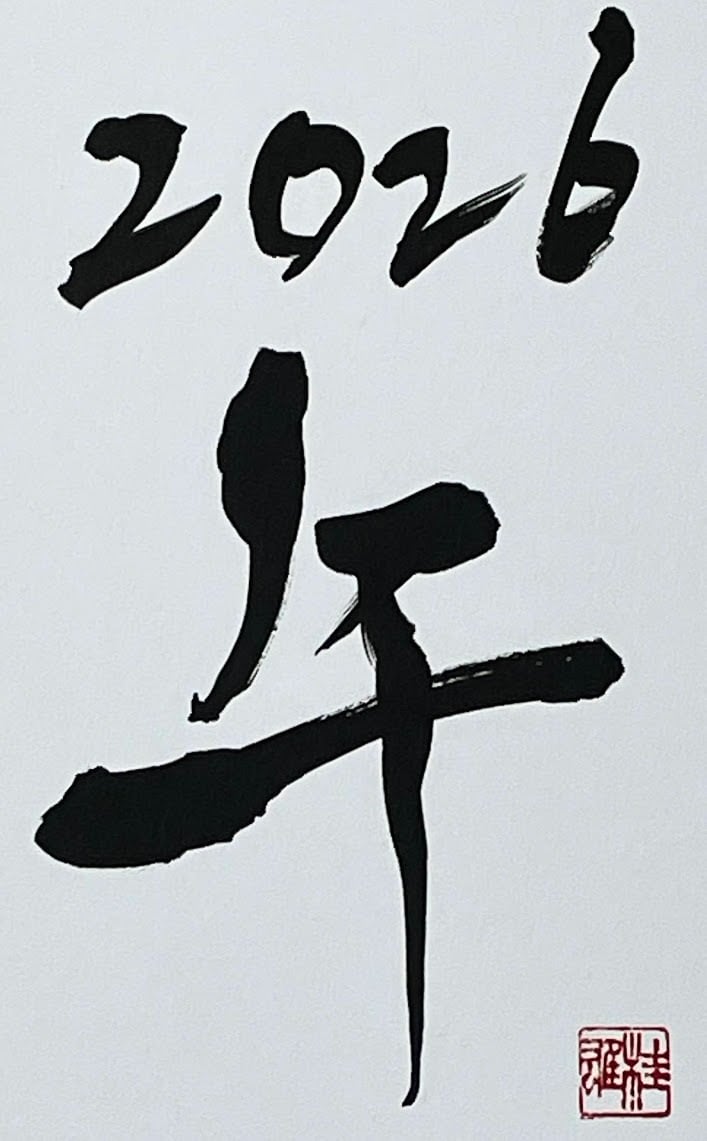 2026
午